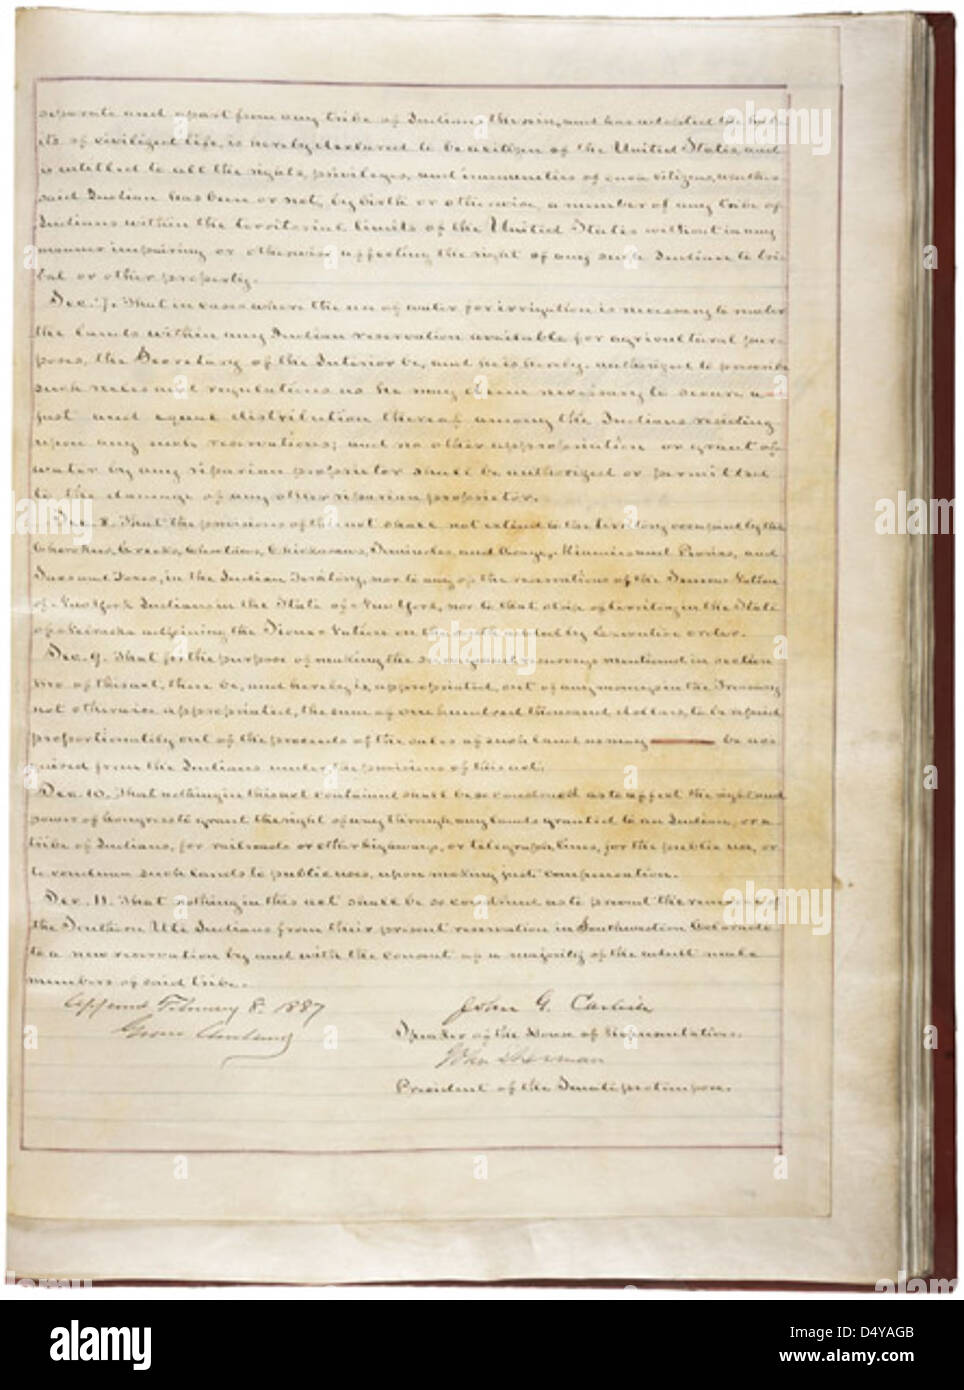 separate and apart from any tribe of Indians therein, and has adopted the hab-
its of civilized life, is hereby declared to be a citizen of the United States, and
is entitled to all the rights, privileges, and immunities of such citizens, whether
said Indian has been or not, by birth or otherwise, a member of any tribe of
Indians within the territorial limits of the United States without in any
manner impairing or otherwise affecting the right of any such Indian to tri-
bal or other property.
Sec. 7. That in cases where the use of water for irrigation is necessary to render
the lands within any Indian reservation available for agricultural pur-
poses, the Secretary of the Interior be, and he is hereby, authorized to prescribe
such rules and regulations as he may deem necessary to secure a
just and equal distribution thereof among the Indians residing
upon any such reservations; and no other appropriation or grant of
water by any riparian proprietor shall be authorized or permitted
to the damage of any other riparian proprietor.
Sec. 8. That the provisions of this act shall not extend to the territory occupied by the
Cherokees, Creeks, Choctaws, Chickasaws, Seminoles, and Osage, Miamies and Peorias, and
Sacs and Foxes, in the Indian Territory, nor to any of the reservations of the Seneca Nation
of New York Indians in the State of New York, nor to that strip of territory in the State
of Nebraska adjoining the Sioux Nation on the south added by executive order.
Sec. 9. That for the purpose of making the surveys and resurveys mentioned in section
two of this act, there be, and hereby is, appropriated, out of any moneys in the Treasury
not otherwise appropriated, the sum of one hundred thousand dollars, to be repaid
proportionately out of the proceeds of the sales of such land as may be ac-
quired from the Indians under the provisions of this act.
Sec. 10. That nothing in this act contained shall be so construed as to affect the right and
power of Congress to grant the right of way through any lands granted to an Indian, or a
tribe of Indians, for railroads or other highways, or telegraph lines, for the public use, or
to condemn such lands to public uses, upon making just compensation.
Sec. 11. That nothing in this act shall be so construed as to prevent the removal of
the Southern Ute Indians from their present reservation in Southwestern Colorado
to a new reservation by and with the consent of a majority of the adult male
members of said tribe.
Approved February 8. 1887
Grover Cleveland
John G. Carlisle
Speaker of the House of Representatives.
John Sherman
President of the Senate pro tempore.
alamy
alamy
Image ID: D4YAGB
www.alamy.com